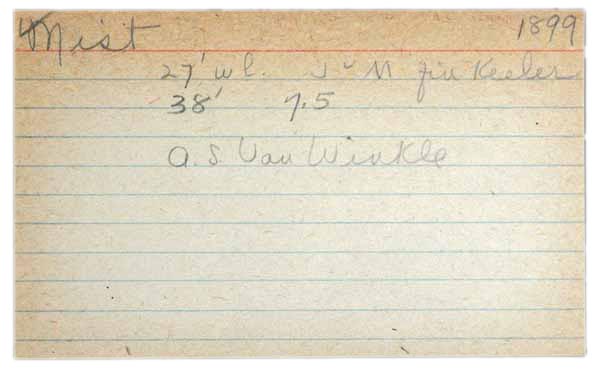 Mist 1899
27' wl. J - M fin Keeler
38' 7.5
A. S Van Winkle